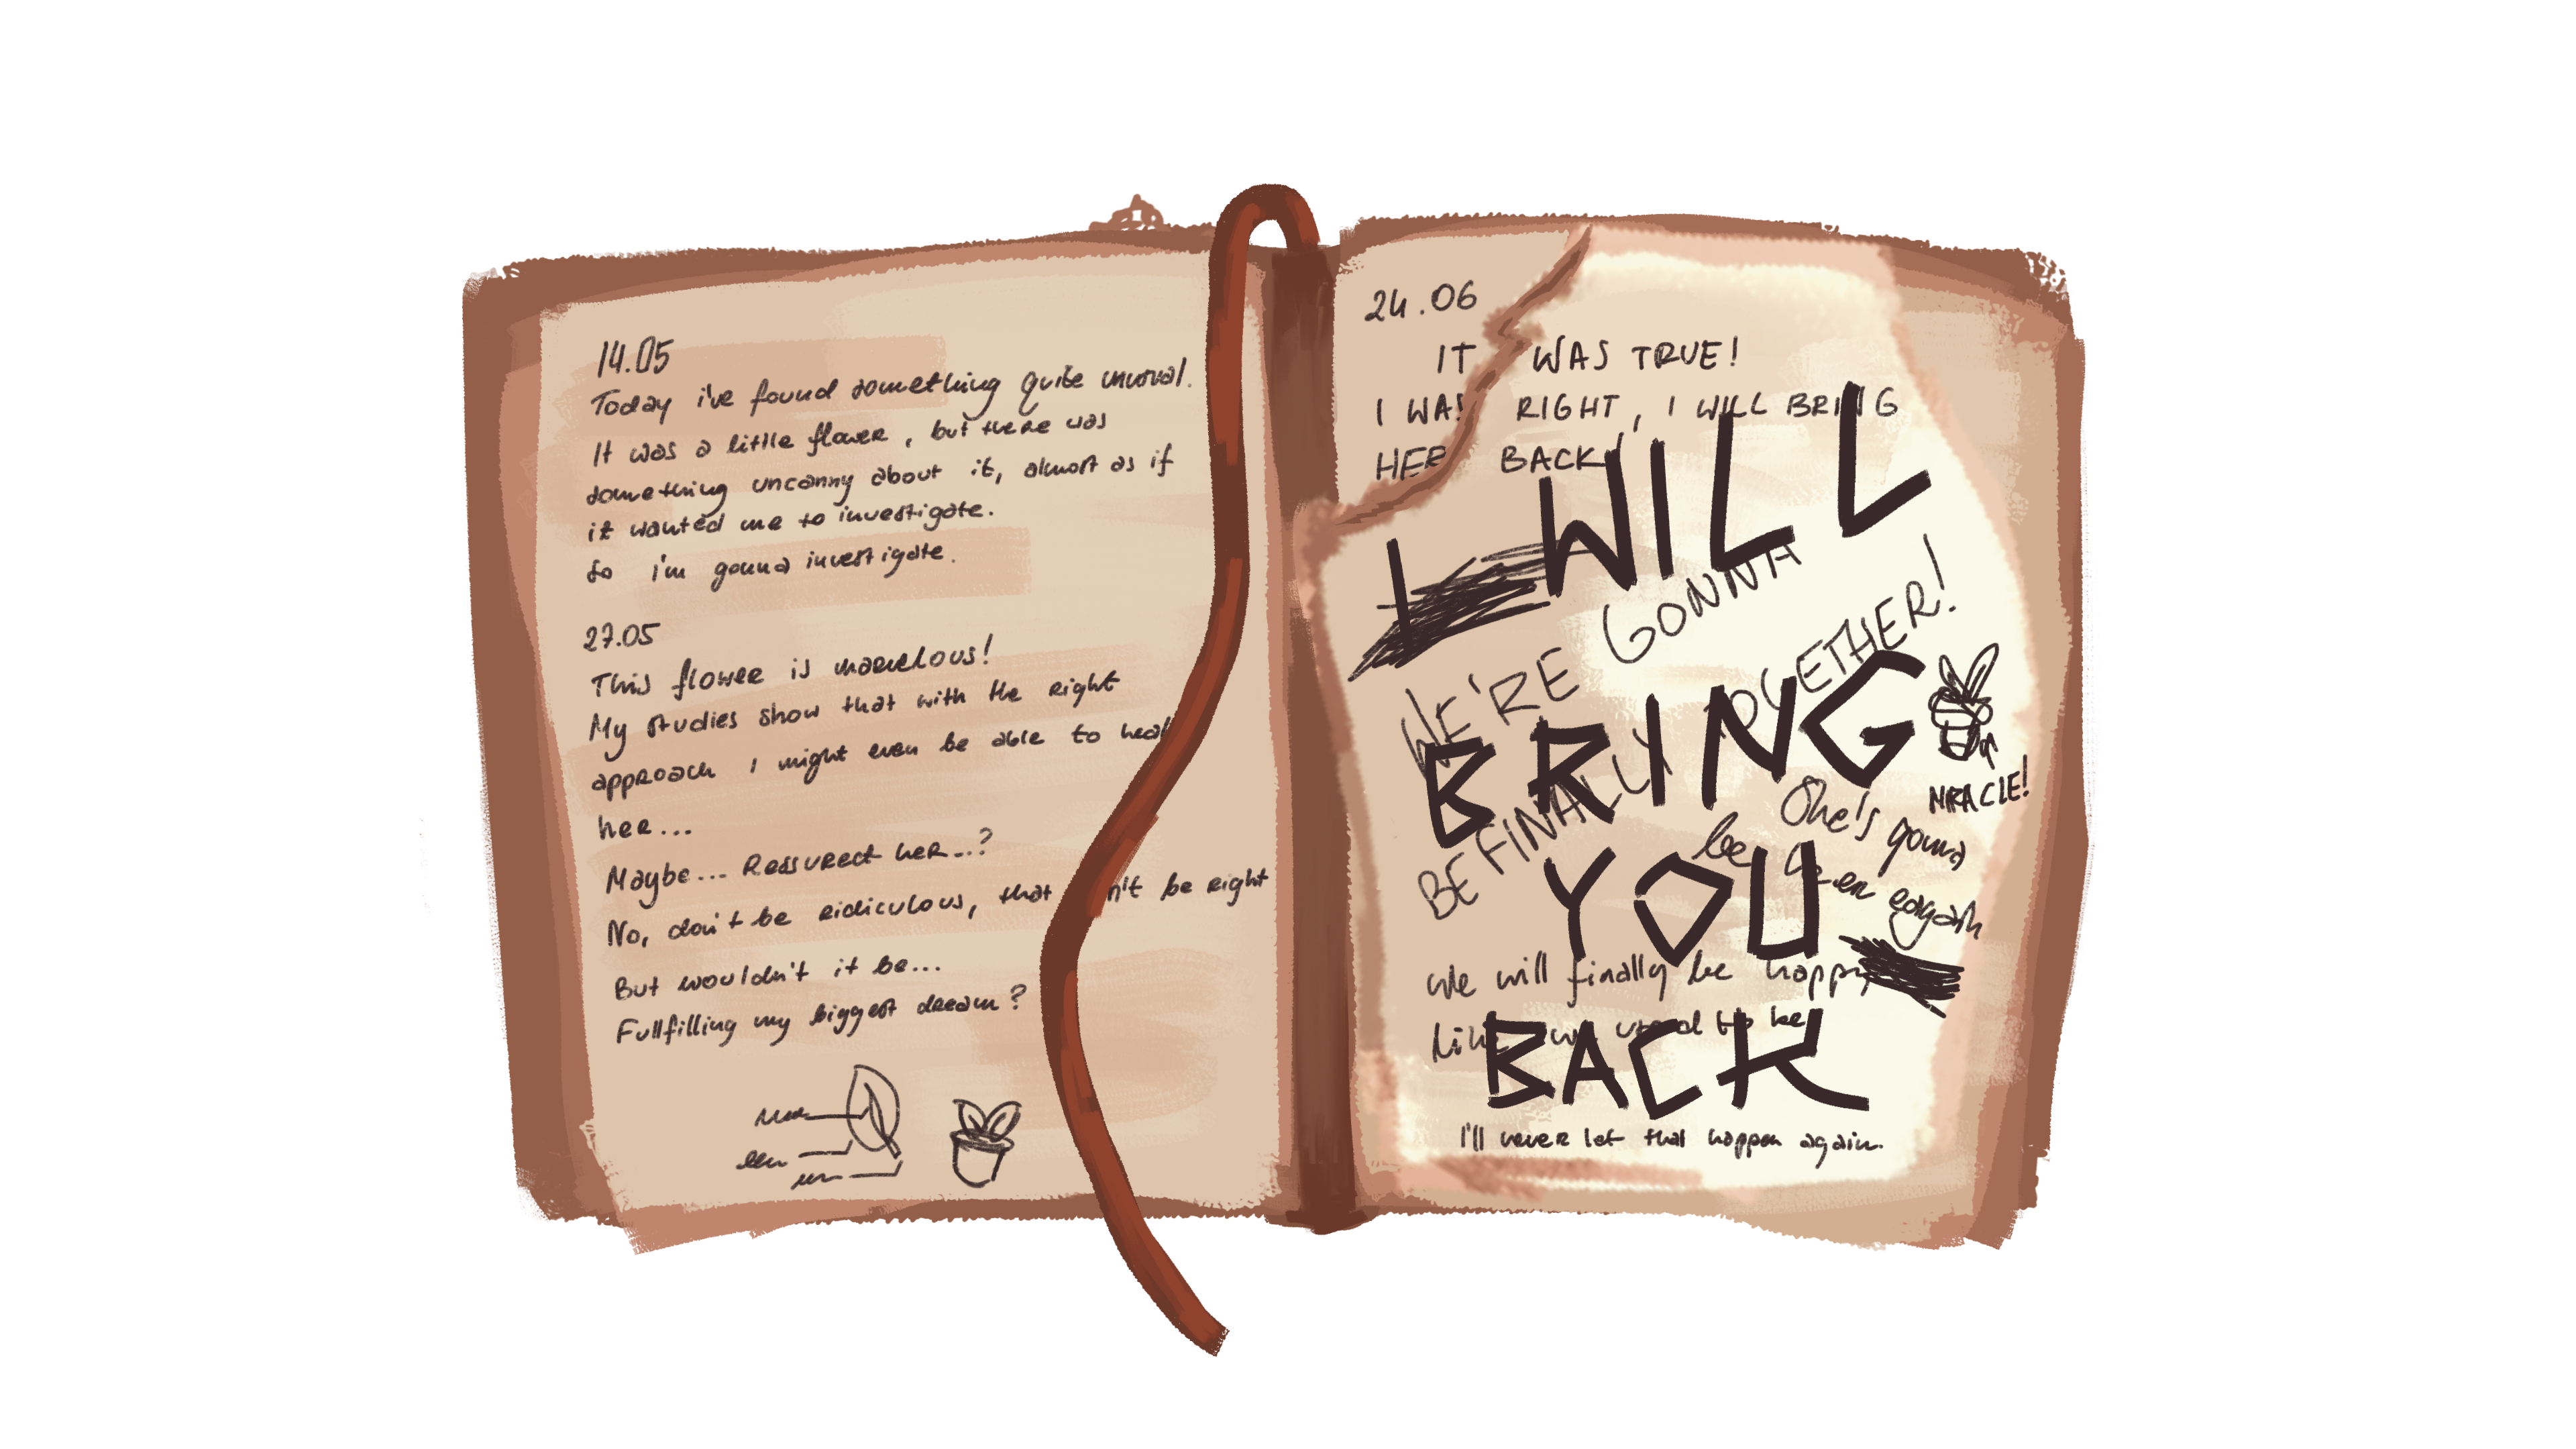 14.05
Today i've found something quite unusual.
It was a little flower, but there was
something uncanny about it, almost as if
it wanted me to investigate.
So i'm gonna investigate.
27.05
This flower is marvelous!
My studies show that with the right
approach I might even be able to heal
her...
Maybe... Ressurect her...?
No, don't be ridiculous, that n't be right
But wouldn't it be...
Fullfilling my biggest dream?
24.06
IT WAS TRUE!
I WAS RIGHT, I WILL BRING
HER BACK!
I WILL
WE'RE GONNA
BE FINALLY TOGETHER!
BRING
MIRACLE!
She's gonna
be even eagain
YOU
We will finally be happy
Like we used to be
BACK
I'll never let that happen again.